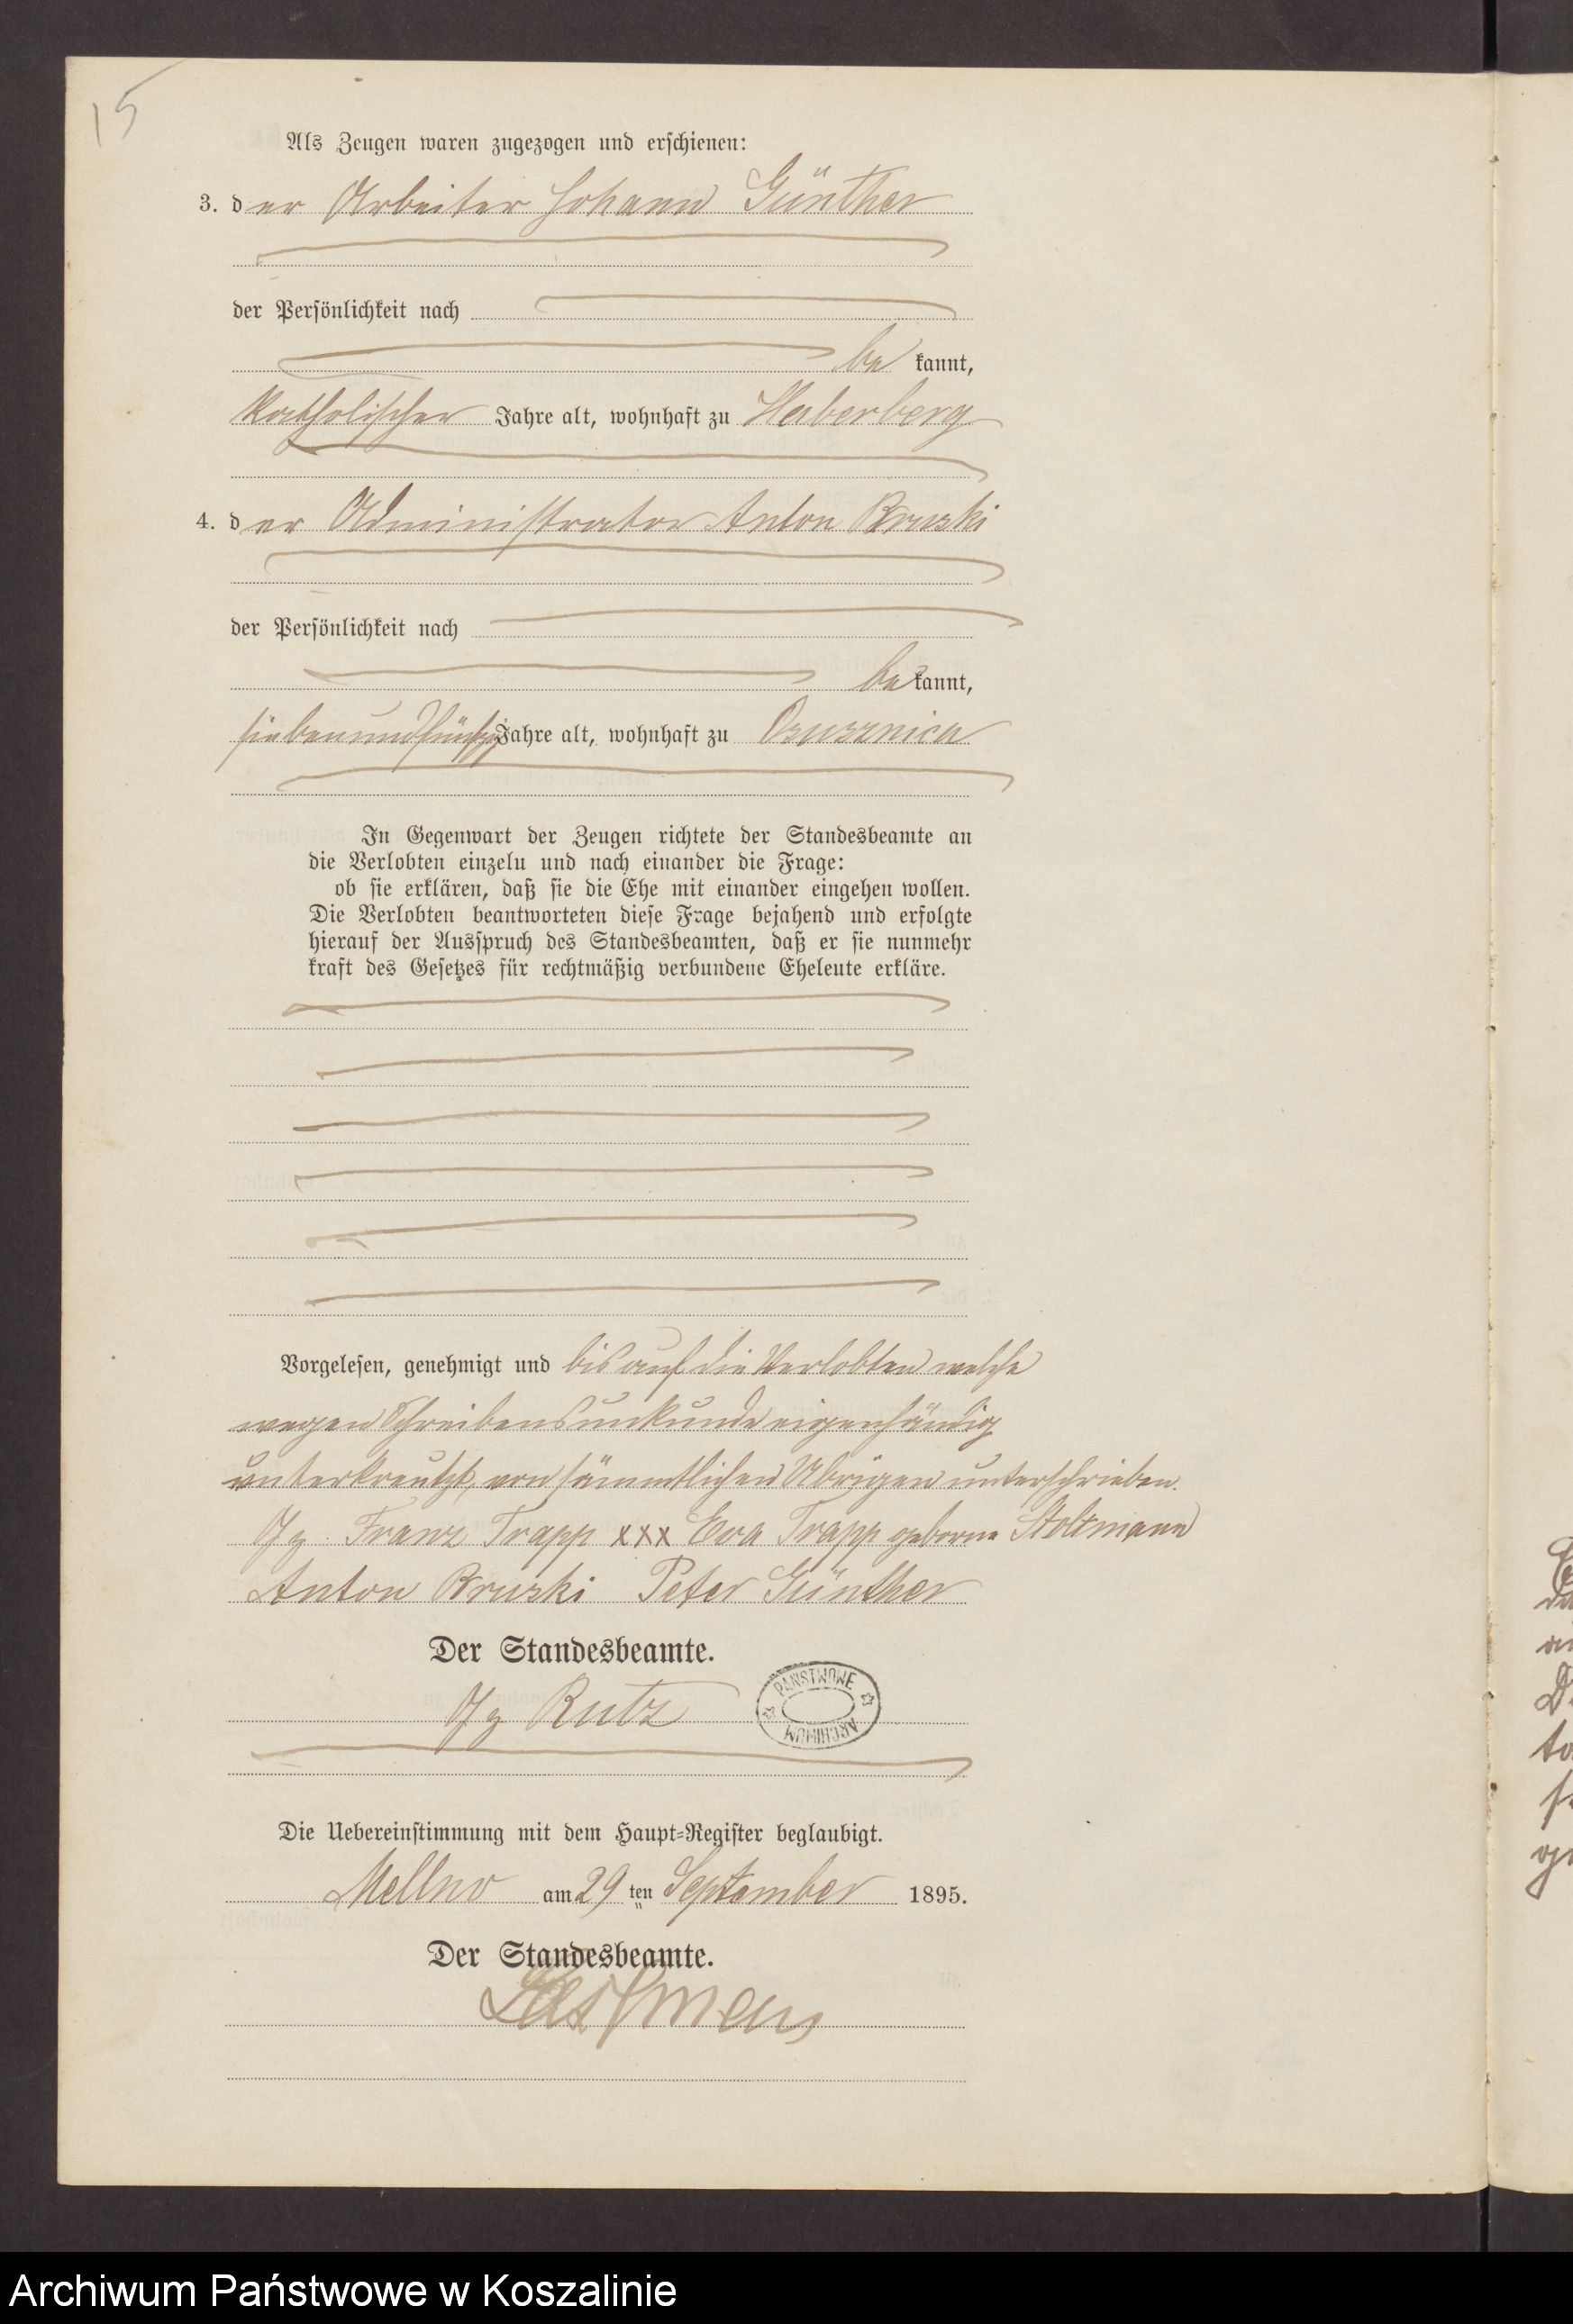 15
Als Zeugen waren zugezogen und erschienen:
3. der Arbeiter Johann Günther
der Persönlichkeit nach
be kannt,
katholischer Jahre alt, wohnhaft zu Haberberg
4. der Administrator Anton Bruski
der Persönlichkeit nach
be kannt,
siebenundfünfzig Jahre alt, wohnhaft zu
In Gegenwart der Zeugen richtete der Standesbeamte an
die Verlobten einzeln und nach einander die Frage:
ob sie erklären, daß sie die Ehe mit einander eingehen wollen.
Die Verlobten beantworteten diese Frage bejahend und erfolgte
hierauf der Ausspruch des Standesbeamten, daß er sie nunmehr
kraft des Gesetzes für rechtmäßig verbundene Eheleute erkläre.
Vorgelesen, genehmigt und bis auf die Verlobten welche
wegen Schreibensunkunde eigenhändig
unterkreutzt, von sämmtlichen Übrigen unterschrieben.
Gz. Franz Trapp xxx Eva Trapp geborne Stoltmann
Anton Bruski Peter Günther
Der Standesbeamte.
Gz Rutz
PAŃSTWOWE
ARCHIWUM
Die Uebereinstimmung mit dem Haupt-Register beglaubigt.
Mellno am 29 ten September 1895.
Der Standesbeamte.
Archiwum Państwowe w Koszalinie